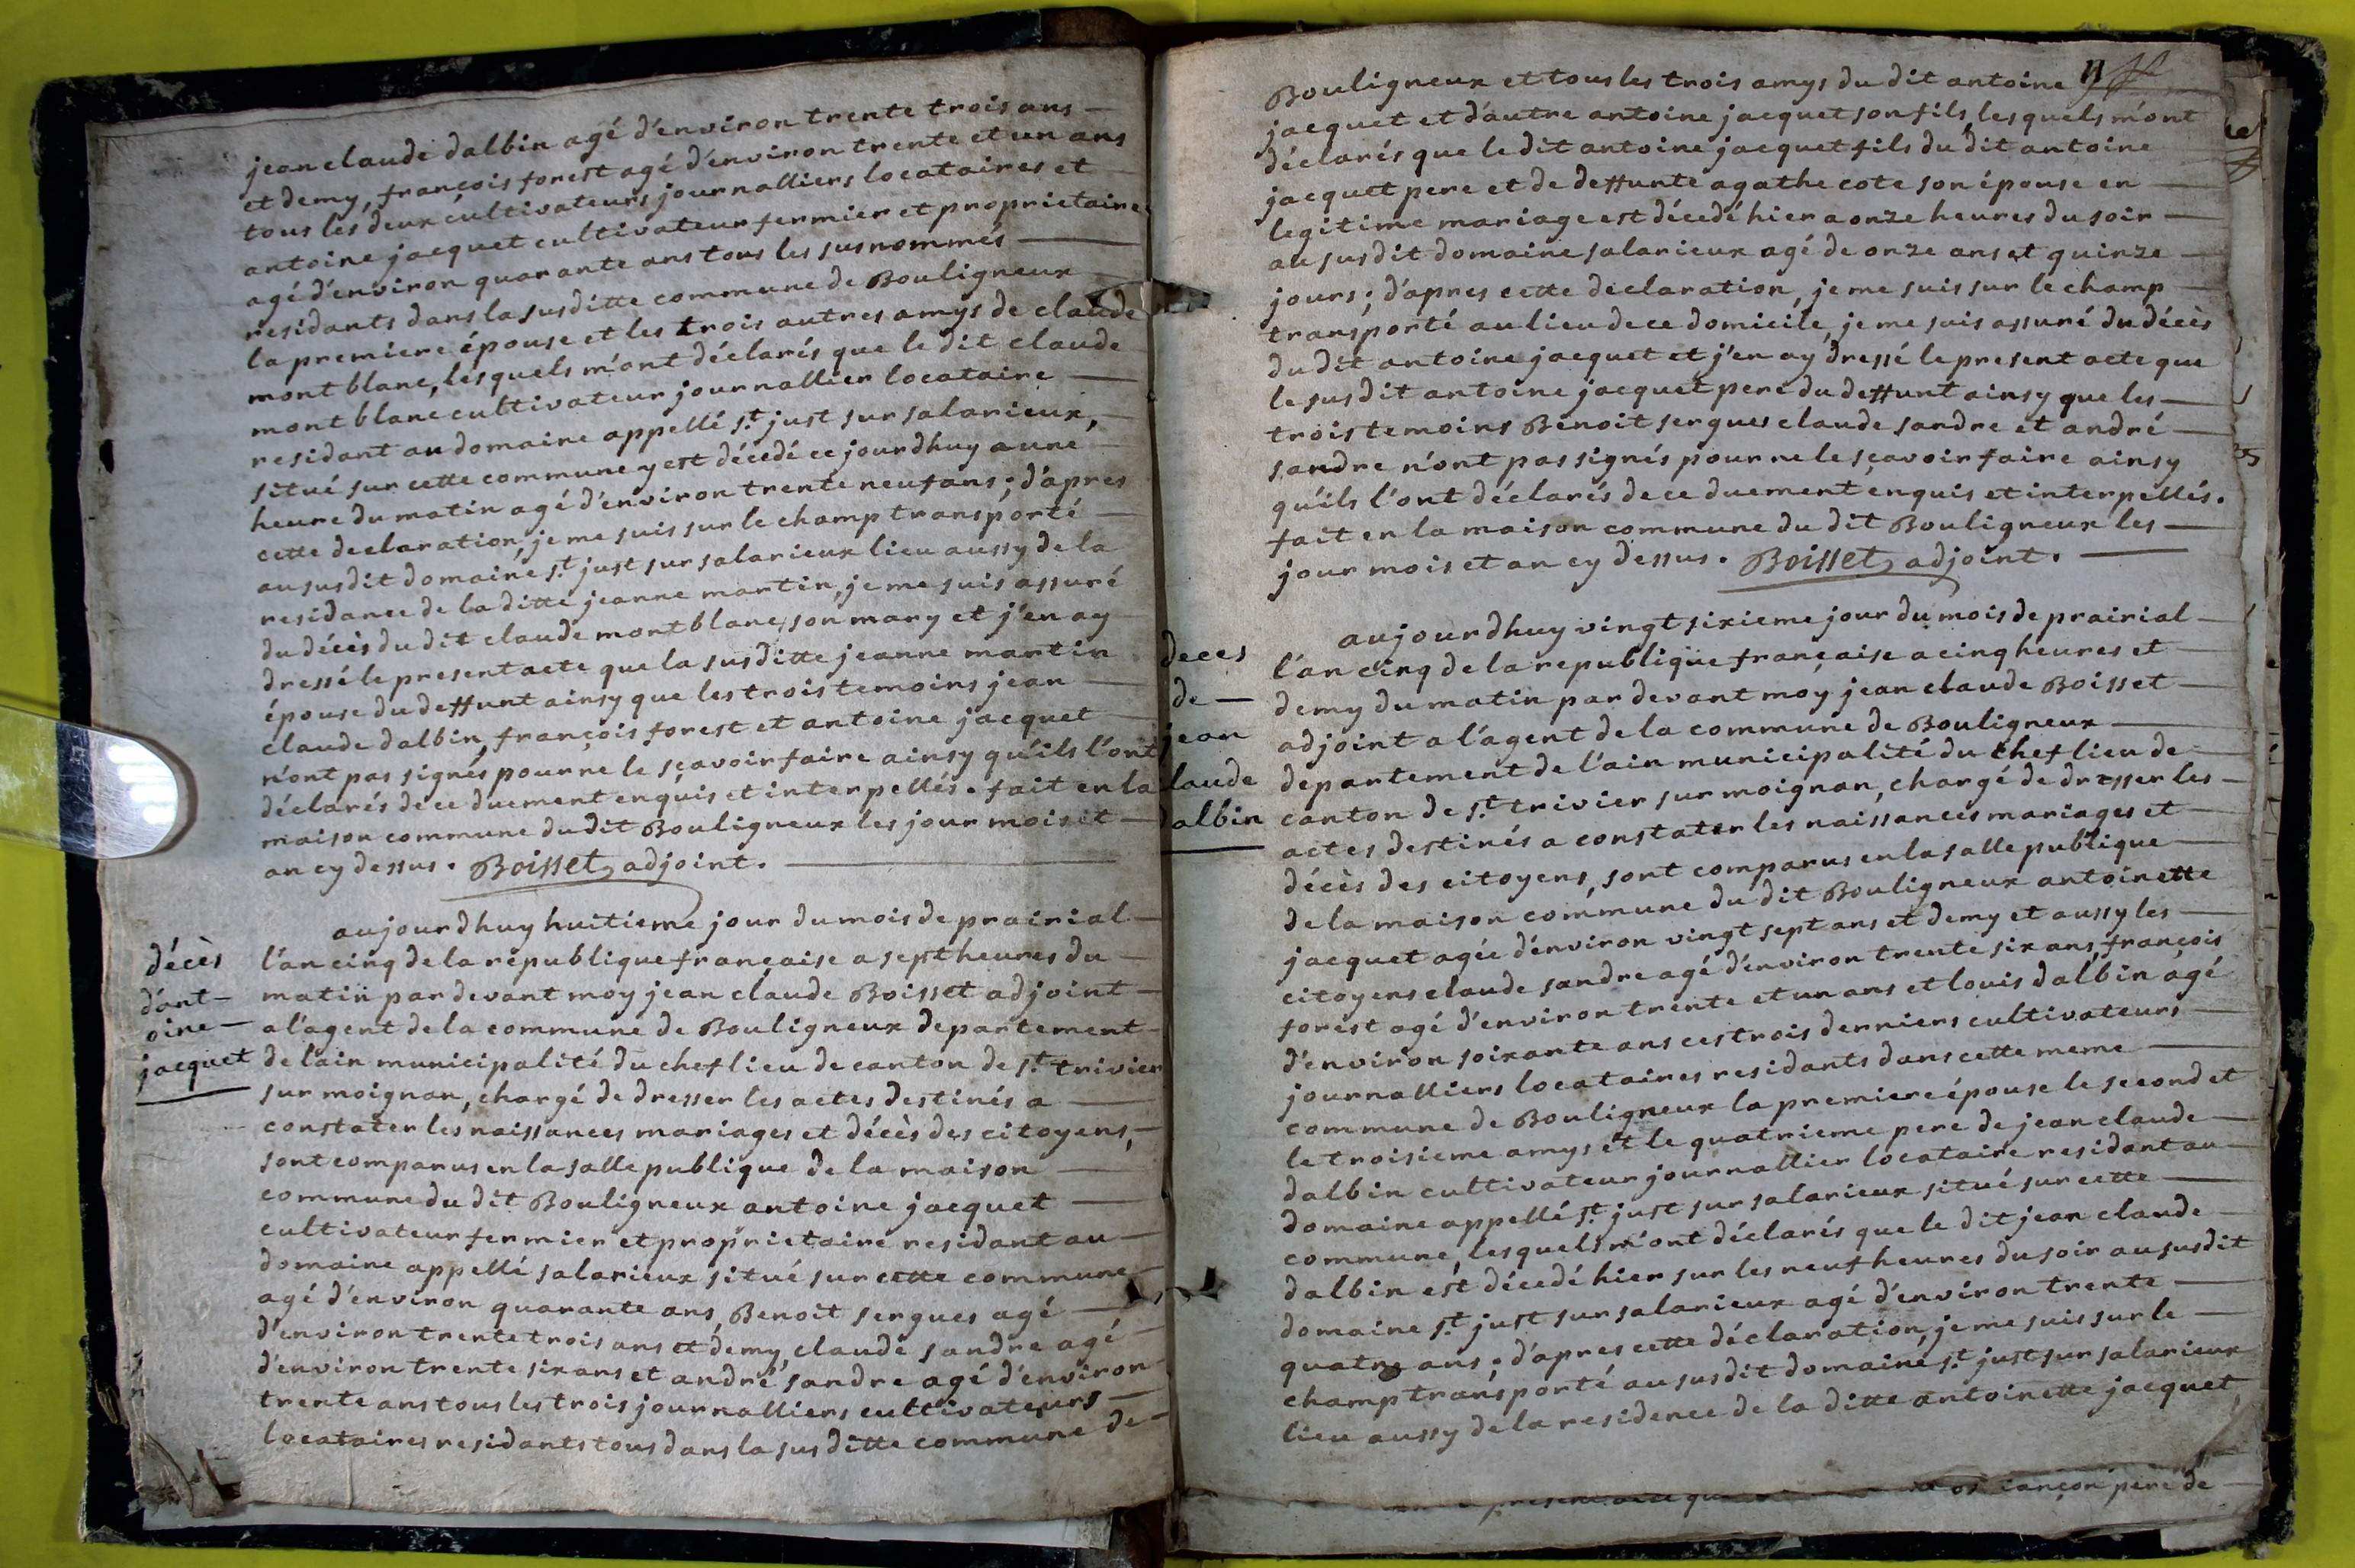 jean claude dalbin agé d'environ trente trois ans
et demy, françois forest agé d'environ trente et un ans
tous les deux cultivateurs journalliers locataires et
antoine jacquet cultivateur fermier et proprietaire
agé d'environ quarante ans tous les susnommés
residants dans la susditte commune de Bouligneux
la premiere épouse et les trois autres amys de claude
mont blanc, lesquels m'ont déclarés que le dit claude
mont blanc cultivateur journallier locataire
residant au domaine appellé st. just sur salarieux,
situé sur cette commune y est décedé ce jourdhuy a une
heure du matin agé d'environ trente neuf ans; d'apres
cette declaration, je me suis sur le champ transporté
au susdit domaine st. just sur salarieux lieu aussy de la
residance de la ditte jeanne martin, je me suis assuré
du décès du dit claude mont blanc, son mary et j'en ay
dressé le present acte que la susditte jeanne martin
épouse du deffunt ainsy que les trois temoins jean
claude dalbin, françois forest et antoine jacquet
n'ont pas signés pour ne le sçavoir faire ainsy qu'ils l'ont
déclarés de ce duement enquis et interpellés. fait en la
maison commune du dit Bouligneux les jour mois et
an cy dessus. Boisset adjoint.
décès
d'ant-
oine
jacquet
aujourdhuy huitieme jour du mois de prairial
l'an cinq de la république française a sept heures du
matin par devant moy jean claude Boisset adjoint
a l'agent de la commune de Bouligneux departement
de l'ain municipalité du chef lieu de canton de st. trivier
sur moignan, chargé de dresser les actes destinés a
constater les naissances mariages et décès des citoyens,
sont comparus en la salle publique de la maison
commune du dit Bouligneux antoine jacquet
cultivateur fermier et proprietaire residant au
domaine appellé salarieux situé sur cette commune
agé d'environ quarante ans, Benoit sergues agé
d'environ trente trois ans et demy, claude sandre agé
d'environ trente six ans et andré sandre agé d'environ
trente ans tous les trois journalliers cultivateurs
locataires residants tous dans la susditte commune de
Bouligneux et tous les trois amys du dit antoine
jacquet et d'autre antoine jacquet son fils, lesquels m'ont
déclarés que le dit antoine jacquet fils du dit antoine
jacquet pere et de deffunte agathe cote son épouse en
legitime mariage est décedé hier a onze heures du soir
au susdit domaine salarieux agé de onze ans et quinze
jours; d'apres cette declaration, je me suis sur le champ
transporté au lieu de ce domicile, je me suis assuré du décès
du dit antoine jacquet et j'en ay dressé le present acte que
le susdit antoine jacquet pere du deffunt ainsy que les
trois temoins Benoit sergues claude sandre et andré
sandre n'ont pas signés pour ne le sçavoir faire ainsy
qu'ils l'ont déclarés de ce duement enquis et interpellés.
fait en la maison commune du dit Bouligneux les
jour mois et an cy dessus. Boisset adjoint.
deces
de
jean
laude
dalbin
aujourdhuy vingt sixieme jour du mois de prairial
l'an cinq de la republique française a cinq heures et
demy du matin par devant moy jean claude Boisset
adjoint a l'agent de la commune de Bouligneux
departement de l'ain municipalité du chef lieu de
canton de st. trivier sur moignan, chargé de dresser les
actes destinés a constater les naissances mariages et
décès des citoyens, sont comparus en la salle publique
de la maison commune du dit Bouligneux antoinette
jacquet agée d'environ vingt sept ans et demy et aussy les
citoyens claude sandre agé d'environ trente six ans, françois
forest agé d'environ trente et un ans et louis dalbin agé
d'environ soixante ans ces trois derniers cultivateurs
journalliers locataires residants dans cette meme
commune de Bouligneux la premiere épouse le second et
le troisieme amys et le quatrieme pere de jean claude
dalbin cultivateur journallier locataire residant au
domaine appellé st. just sur salarieux situé sur cette
commune, lesquels m'ont déclarés que le dit jean claude
dalbin est décedé hier sur les neuf heures du soir au susdit
domaine st. just sur salarieux agé d'environ trente
quatre ans; d'apres cette déclaration, je me suis sur le
champ transporté au susdit domaine st. just sur salarieux
lieu aussy de la residence de la ditte antoinette jacquet
pere de